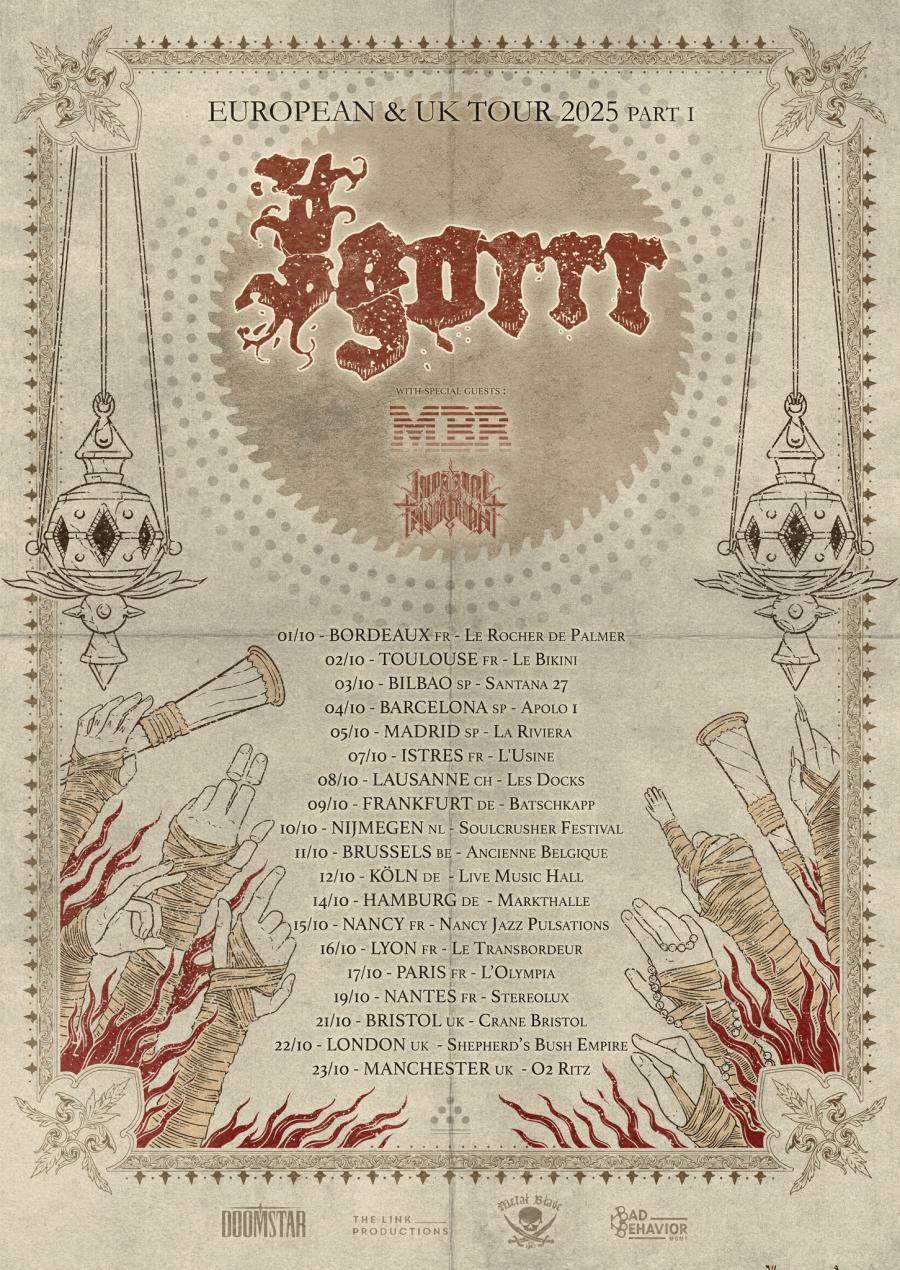 EUROPEAN & UK TOUR 2025 PART I
Igorrr
WITH SPECIAL GUESTS :
MBR
IMPERIAL
TRIUMPHANT
01/10 - BORDEAUX FR - LE ROCHER DE PALMER
02/10 - TOULOUSE FR - LE BIKINI
03/10 - BILBAO SP - SANTANA 27
04/10 - BARCELONA SP - APOLO 1
05/10 - MADRID SP - LA RIVIERA
07/10 - ISTRES FR - L'USINE
08/10 - LAUSANNE CH - LES DOCKS
09/10 - FRANKFURT DE - BATSCHKAPP
10/10 - NIJMEGEN NL - SOULCRUSHER FESTIVAL
11/10 - BRUSSELS BE - ANCIENNE BELGIQUE
12/10 - KÖLN DE - LIVE MUSIC HALL
14/10 - HAMBURG DE - MARKTHALLE
15/10 - NANCY FR - NANCY JAZZ PULSATIONS
16/10 - LYON FR - LE TRANSBORDEUR
17/10 - PARIS FR - L'OLYMPIA
19/10 - NANTES FR - STEREOLUX
21/10 - BRISTOL UK - CRANE BRISTOL
22/10 - LONDON UK - SHEPHERD'S BUSH EMPIRE
23/10 - MANCHESTER UK - O2 RITZ
DOOMSTAR
THE LINK
PRODUCTIONS
Metal Blade
BAD
BEHAVIOR
MGMT